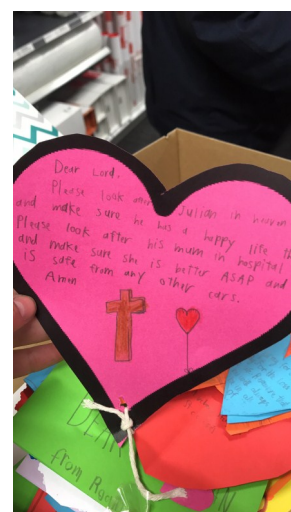 Dear Lord.
Please look after Julian in heaven
and make sure he has a happy life
Please look after his mum in hospital
and make sure she is better ASAP and
is safe from any other cars.
Amen
DEAR
from